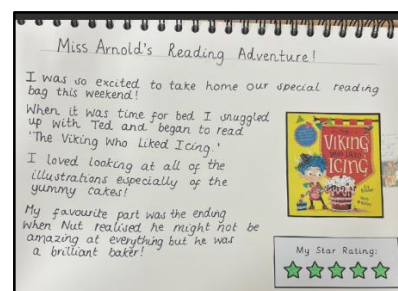 Miss Arnold's Reading Adventure!
I was so excited to take home our special reading
bag this weekend!
When it was time for bed I snuggled
up with Ted and began to read
'The Viking Who Liked Icing.'
I loved looking at all of the
illustrations especially of the
yummy cakes!
My favourite part was the ending
when Nut realised he might not be
amazing at everything but he was
a brilliant baker!
THE
VIKING
WHO LIKED
ICING
My Star Rating: